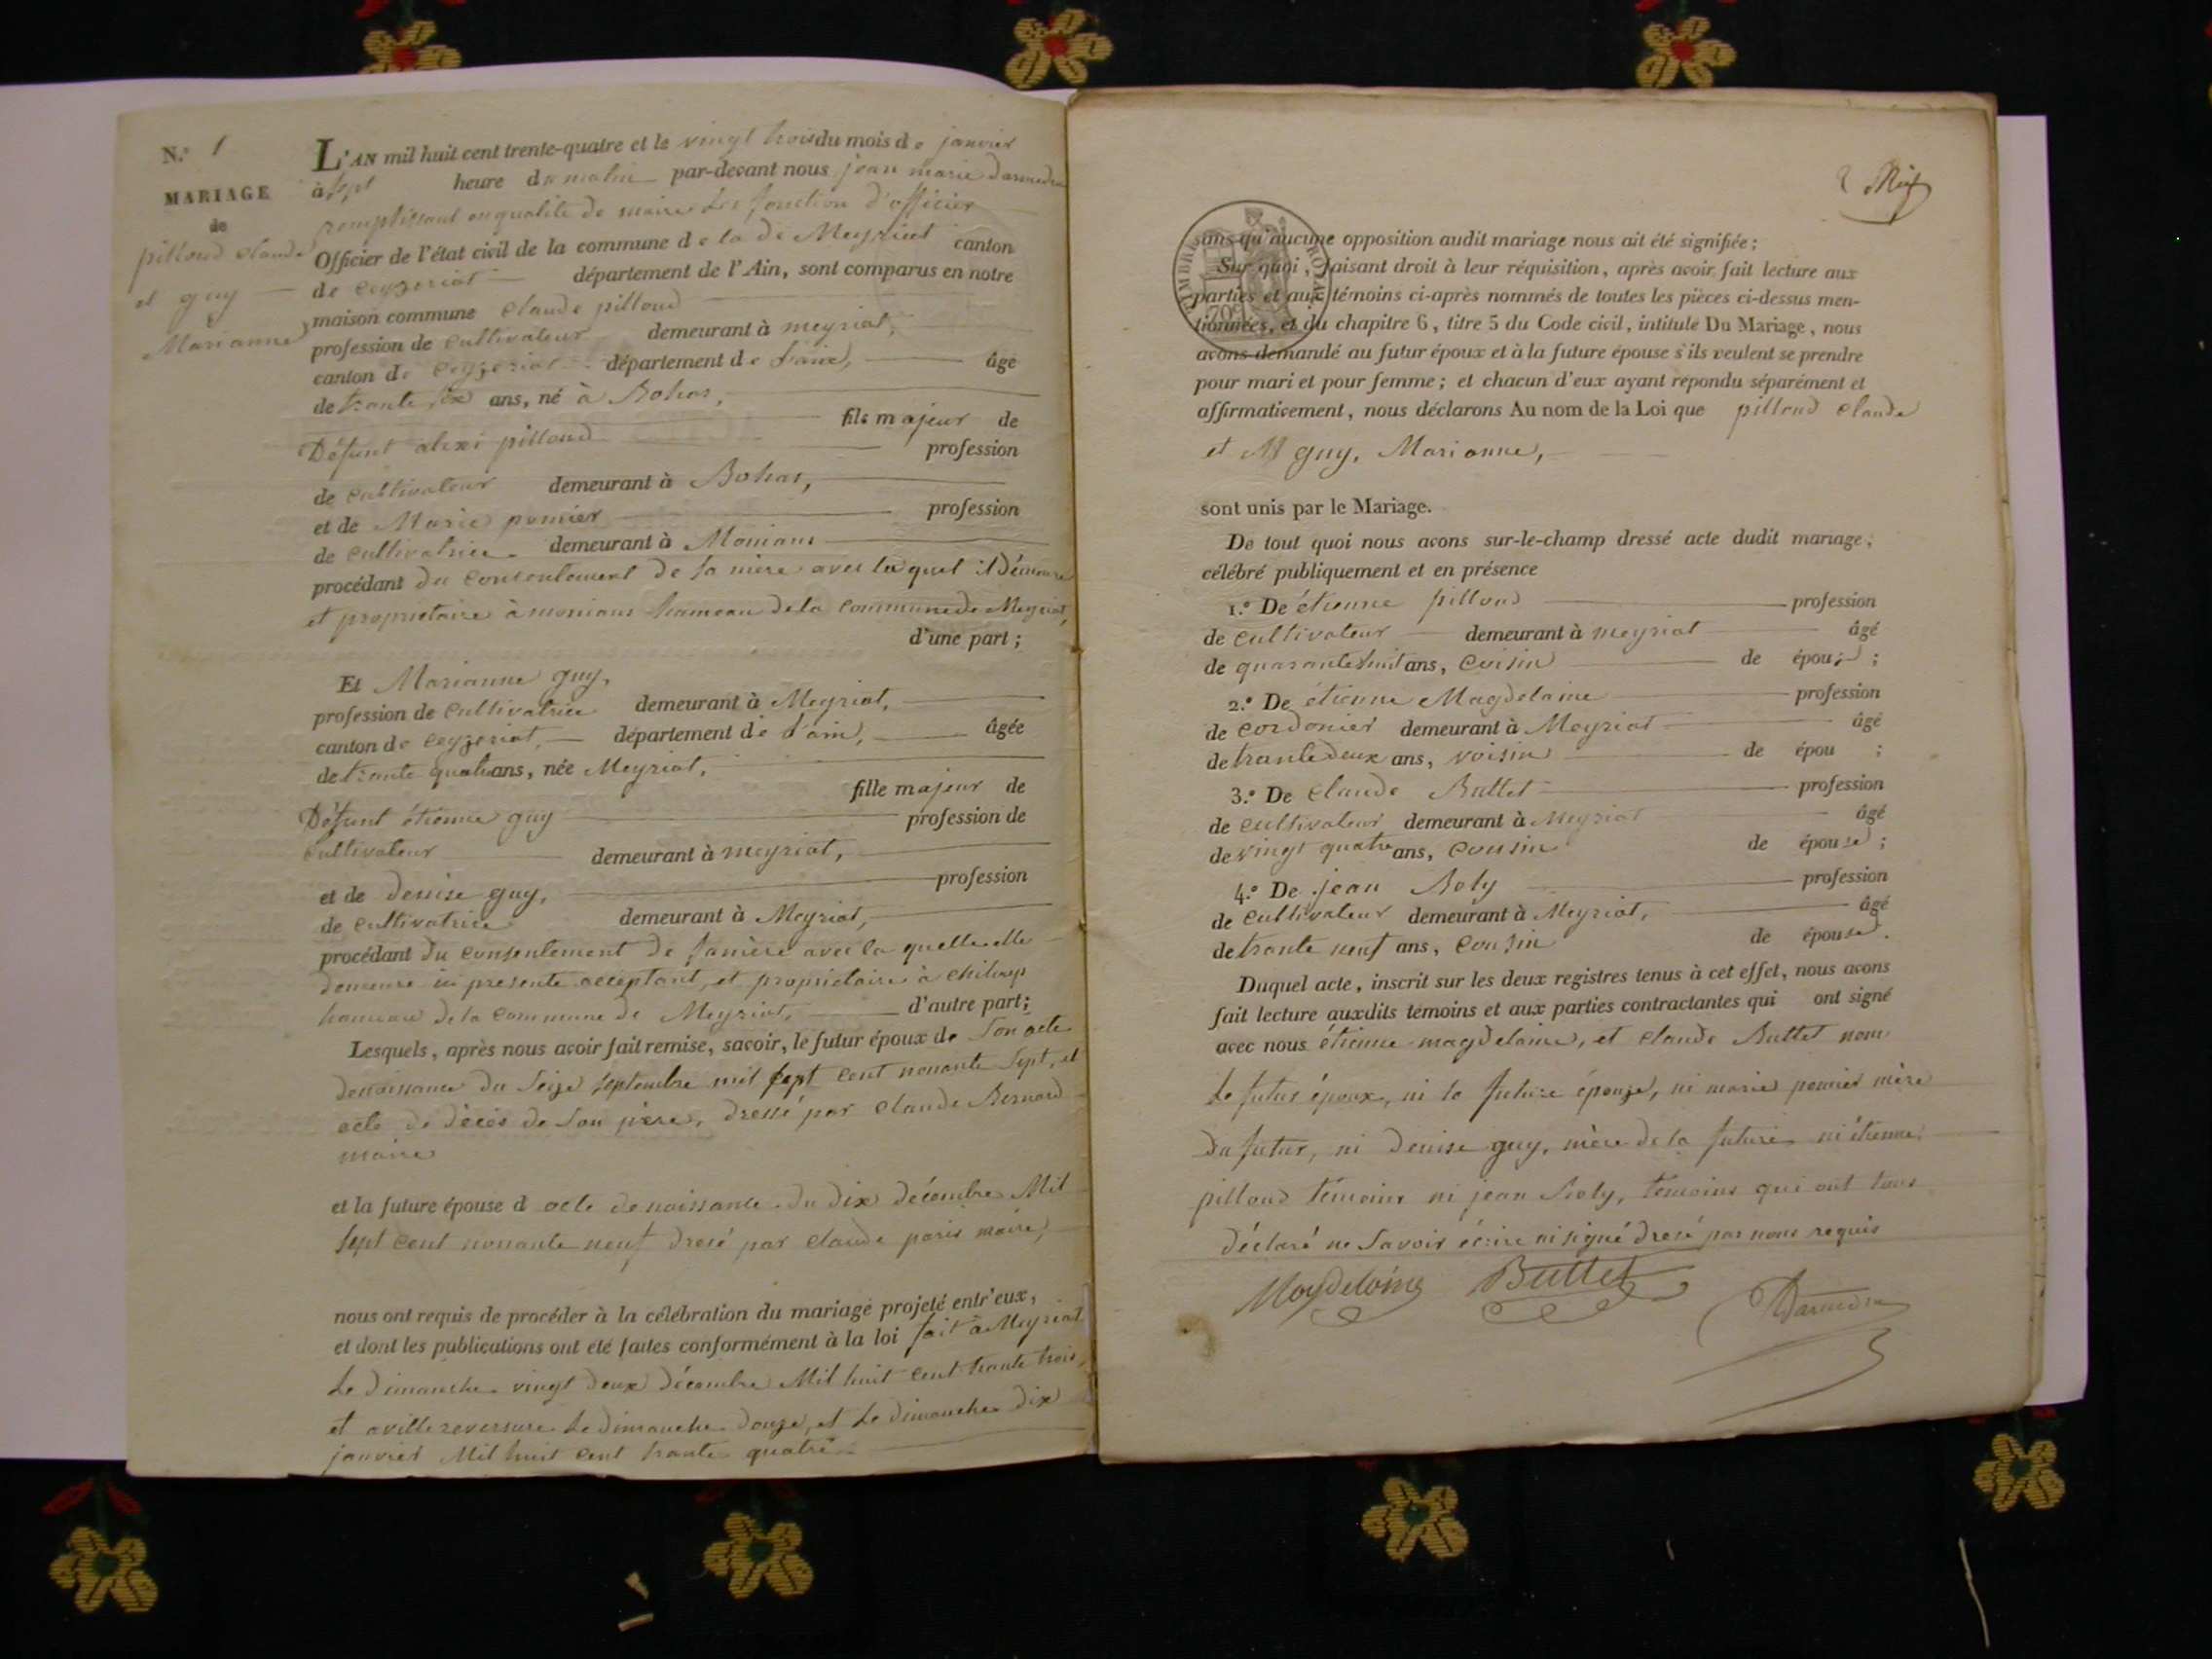 N.° 1
MARIAGE
de
pilloud claude
et guy
Marianne
L'AN mil huit cent trente-quatre et le vingt trois du mois de janvier
à sept heure du matin par-devant nous jean marie darmedru
remplissant en qualité de maire les fonction d'officier
Officier de l'état civil de la commune de la de Meyriat canton
de ceyzeriat département de l'Ain, sont comparus en notre
maison commune claude pilloud
profession de cultivateur demeurant à meyriat,
canton de ceyzeriat département de l'ain, âgé
de trante six ans, né à Bohas,
fils majeur de
Défunt alexi pilloud profession
de cultivateur demeurant à Bohas,
et de Marie pomier profession
de cultivatrice demeurant à Moinans
procédant du consentement de sa mère avec la quel il démeure
et propriétaire à moinans hameau de la commune de Meyriat,
d'une part ;
Et Marianne guy,
profession de cultivatrice demeurant à Meyriat,
canton de ceyzeriat, département de l'ain, âgée
de trante quatre ans, née Meyriat,
fille majeur de
Défunt étienne guy profession de
cultivateur demeurant à meyriat,
et de denise guy, profession
de cultivatrice demeurant à Meyriat,
procédant du consentement de sa mère avec la quelle elle
demeure ici presente acceptant, et propriétaire à
hameau de la commune de Meyriat, d'autre part;
Lesquels, après nous avoir fait remise, savoir, le futur époux de son acte
denaissance du seize septembre mil sept cent nonante sept, et
acte de décès de son père, dressé par claude Bernard
maire
et la future épouse d acte de naissance du dix décembre Mil
sept cent nonante neuf dresé par claude paris maire,
nous ont requis de procéder à la célébration du mariage projeté entr'eux,
et dont les publications ont été faites conformément à la loi fait à Meyriat
Le dimanche vingt deux décembre Mil huit cent trante trois,
et a villereversure le dimanche douze, et le dimanche dix
janvier Mil huit cent trante quatre
2
TIMBRE ROYAL
70c
sans qu'aucune opposition audit mariage nous ait été signifiée ;
Sur quoi, faisant droit à leur réquisition, après avoir fait lecture aux
parties et aux témoins ci-après nommés de toutes les pièces ci-dessus men-
tionnées, et du chapitre 6, titre 5 du Code civil, intitulé Du Mariage, nous
avons demandé au futur époux et à la future épouse s'ils veulent se prendre
pour mari et pour femme ; et chacun d'eux ayant répondu séparément et
affirmativement, nous déclarons Au nom de la Loi que pilloud claude
et guy, Marianne,
sont unis par le Mariage.
De tout quoi nous avons sur-le-champ dressé acte dudit mariage,
célébré publiquement et en présence
1.° De étienne pilloud profession
de cultivateur demeurant à meyriat âgé
de quarante huit ans, cousin de épou ;
2.° De étienne Magdelaine profession
de cordonier demeurant à Meyriat âgé
de trante deux ans, voisin de épou ;
3.° De claude Buttet profession
de cultivateur demeurant à Meyriat âgé
de vingt quatre ans, cousin de épouse ;
4.° De jean Boly profession
de cultivateur demeurant à Meyriat, âgé
de trante neuf ans, cousin de épouse.
Duquel acte, inscrit sur les deux registres tenus à cet effet, nous avons
fait lecture auxdits témoins et aux parties contractantes qui ont signé
avec nous étienne magdelaine, et claude Buttet nom
Le futur époux, ni la future épouze, ni marie pomier mère
du futur, ni denise guy, mère de la future ni étienne
pilloud témoins ni jean Boly, témoins qui ont tous
déclaré ne savoir écrire ni signé dresé par nous requis
Magdelaine Buttet
Darmedru